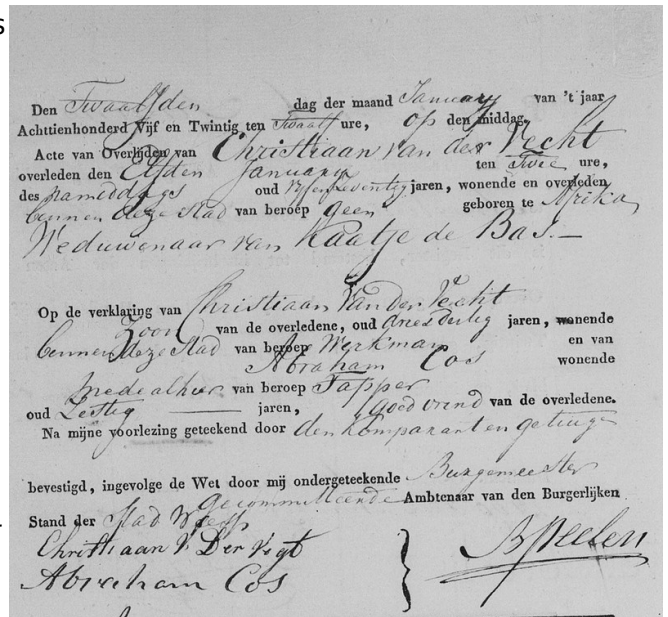 s
Den Twaalfden dag der maand January van 't jaar
Achttienhonderd Vijf en Twintig ten Twaalf ure, op den middag.
Acte van Overlijden van Christiaan van der Vecht
overleden den Elfden January ten Twee ure,
des namiddags oud Vyfenseventig jaren, wonende en overleden
bennen deze stad van beroep geen geboren te Afrika
Weduwenaar van Kaatje de Bas.
Op de verklaring van Christiaan Van der Vecht
Zoon van de overledene, oud driesdertig jaren, wonende
bennen deze Stad van beroep Werkman en van
Abraham Cos wonende
mede alhier van beroep Tapper
oud Zestig jaren, goed vrend van de overledene.
Na mijne voorlezing geteekend door den komparant en getuige
bevestigd, ingevolge de Wet door mij ondergeteekende Burgemeester
gecommitteerde Ambtenaar van den Burgerlijken
Stand der Stad Weesp
Christiaan V Der Vegt
Abreham Cos